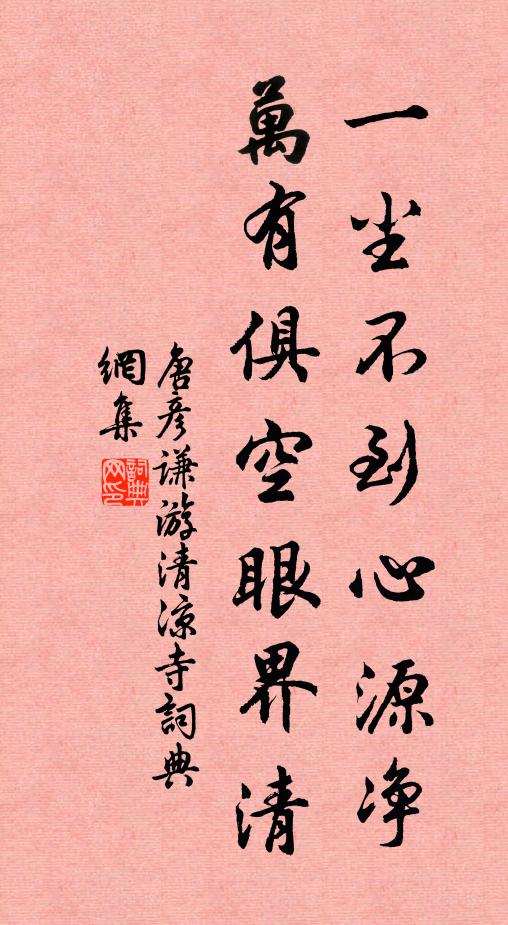 一尘不到心源净
萬有俱空眼界清
唐彦谦游清凉寺詞典
網集
詞典网印